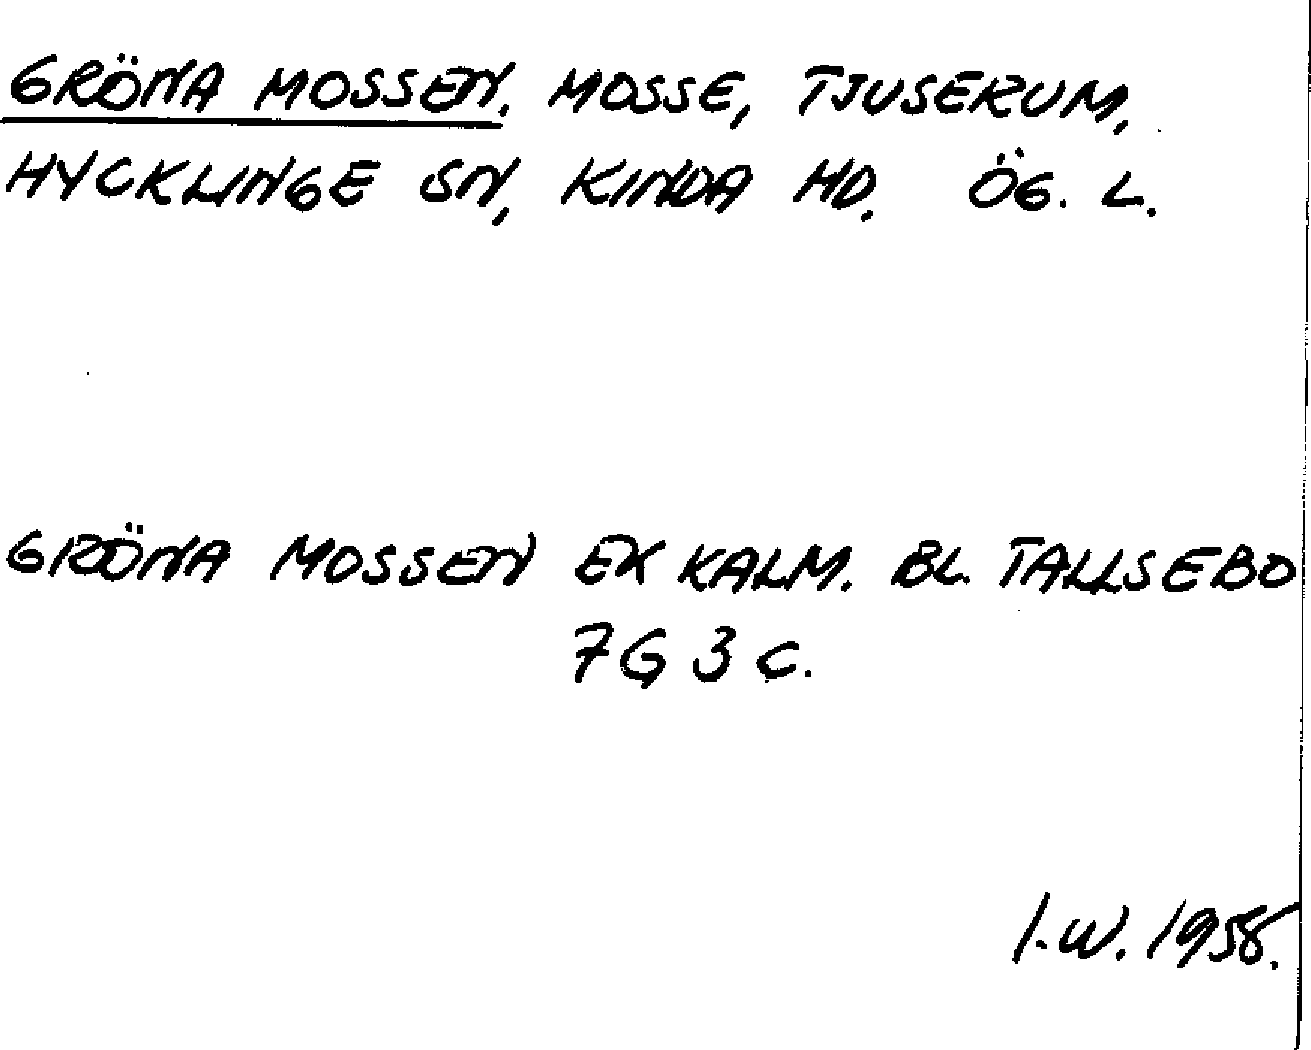 GRÖNA MOSSEN. MOSSE, TJUSERUM,
HYCKLINGE SN, KINDA HD. ÖG. L.
GRÖNA MOSSEN EK KALM. BL. TALLSEBO
7G 3 C.
I.W. 1958.